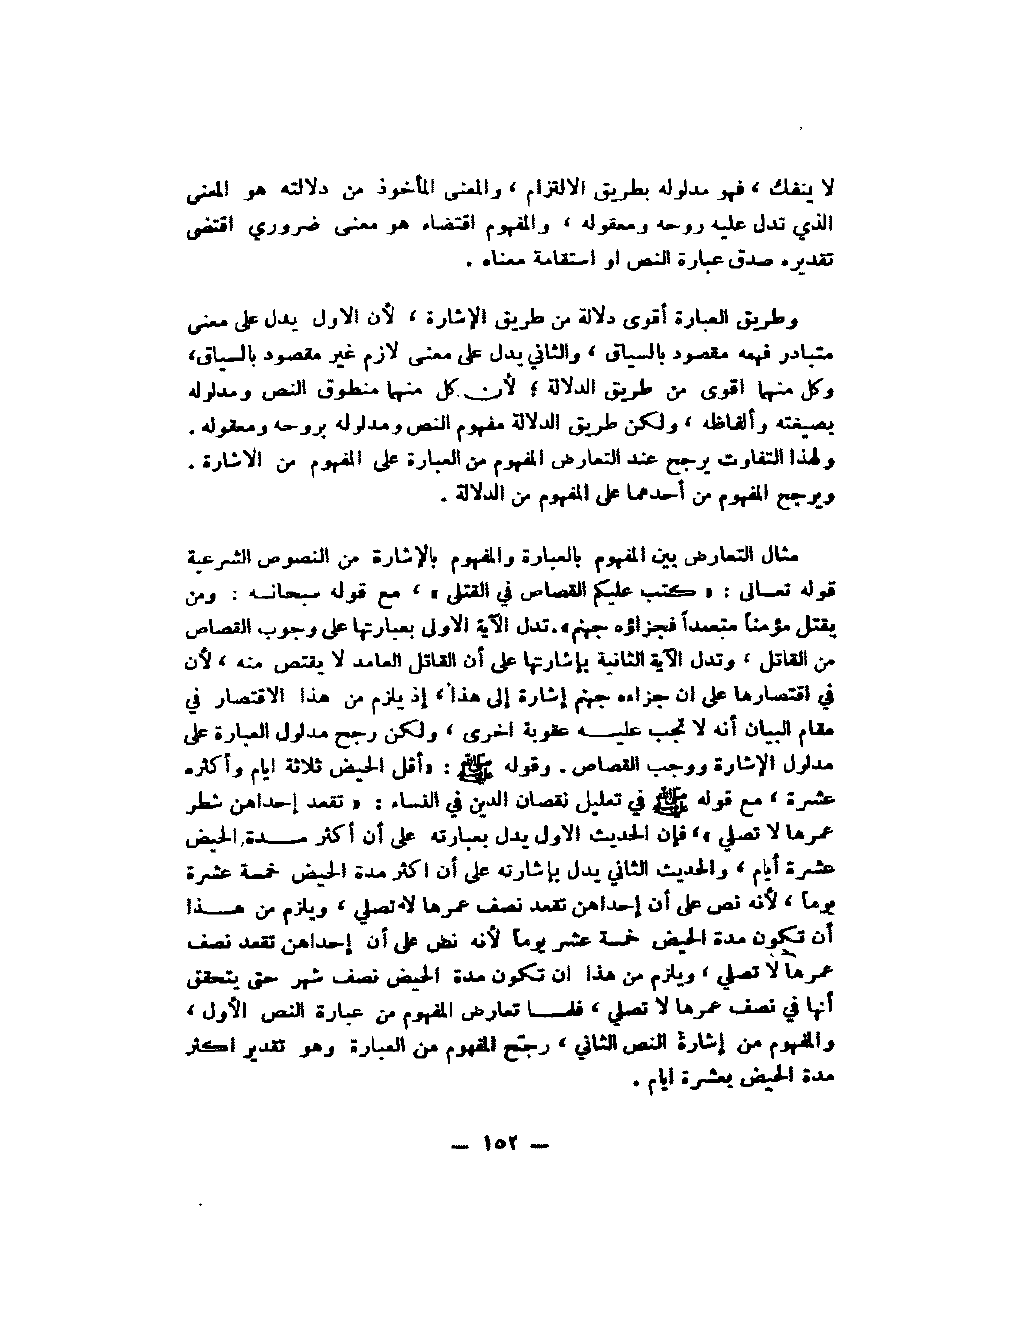 لا ينفك ، فهو مدلوله بطريق الالتزام ، والمعنى المأخوذ من دلالته هو المعنى
الذي تدل عليه روحه ومعقوله ، والمفهوم اقتضاء هو معنى ضروري اقتضى
تقديره صدق عبارة النص او استقامة معناه .
وطريق العبارة أقوى دلالة من طريق الإشارة ، لأن الاول يدل على معنى
متبادر فهمه مقصود بالسياق ، والثاني يدل على معنى لازم غير مقصود بالسياق،
وكل منها اقوى من طريق الدلالة ؛ لأن كل منها منطوق النص ومدلوله
بصيغته وألفاظه ، ولكن طريق الدلالة مفهوم النص ومدلوله بروحه ومعقوله .
ولهذا التفاوت يرجح عند التعارض المفهوم من العبارة على المفهوم من الاشارة .
ويرجح المفهوم من أحدهما على المفهوم من الدلالة .
مثال التعارض بين المفهوم بالعبارة والمفهوم بالإشارة من النصوص الشرعية
قوله تعالى : « كتب عليكم القصاص في القتلى » ، مع قوله سبحانه : ومن
يقتل مؤمناً متعمداً فجزاؤه جهنم». تدل الآية الاولى بعبارتها على وجوب القصاص
من القاتل ، وتدل الآية الثانية بإشارتها على أن القاتل العامد لا يقتص منه ، لأن
في اقتصارها على ان جزاءه جهنم إشارة إلى هذا ، إذ يلزم من هذا الاقتصار في
مقام البيان أنه لا تجب عليه عقوبة اخرى ، ولكن رجح مدلول العبارة على
مدلول الإشارة ووجب القصاص . وقوله ﷺ : «أقل الحيض ثلاثة ايام وأكثره
عشرة ، مع قوله ﷺ في تعليل نقصان الدين في النساء : « تقعد إحداهن شطر
عمرها لا تصلي »، فإن الحديث الاول يدل بعبارته على أن أكثر مدة الحيض
عشرة أيام ، والحديث الثاني يدل بإشارته على أن اكثر مدة الحيض خمسة عشرة
يوماً ، لأنه نص على أن إحداهن تقعد نصف عمرها لا تصلي ، ويلزم من هذا
أن تكون مدة الحيض خمسة عشر يوماً لأنه نص على أن إحداهن تقعد نصف
عمرها لا تصلي ، ويلزم من هذا ان تكون مدة الحيض نصف شهر حتى يتحقق
أنها في نصف عمرها لا تصلي ، فلما تعارض المفهوم من عبارة النص الأول ،
والمفهوم من إشارة النص الثاني ، رجّح المفهوم من العبارة وهو تقدير اكثر
مدة الحيض بعشرة ايام .
— ١٥٢ —